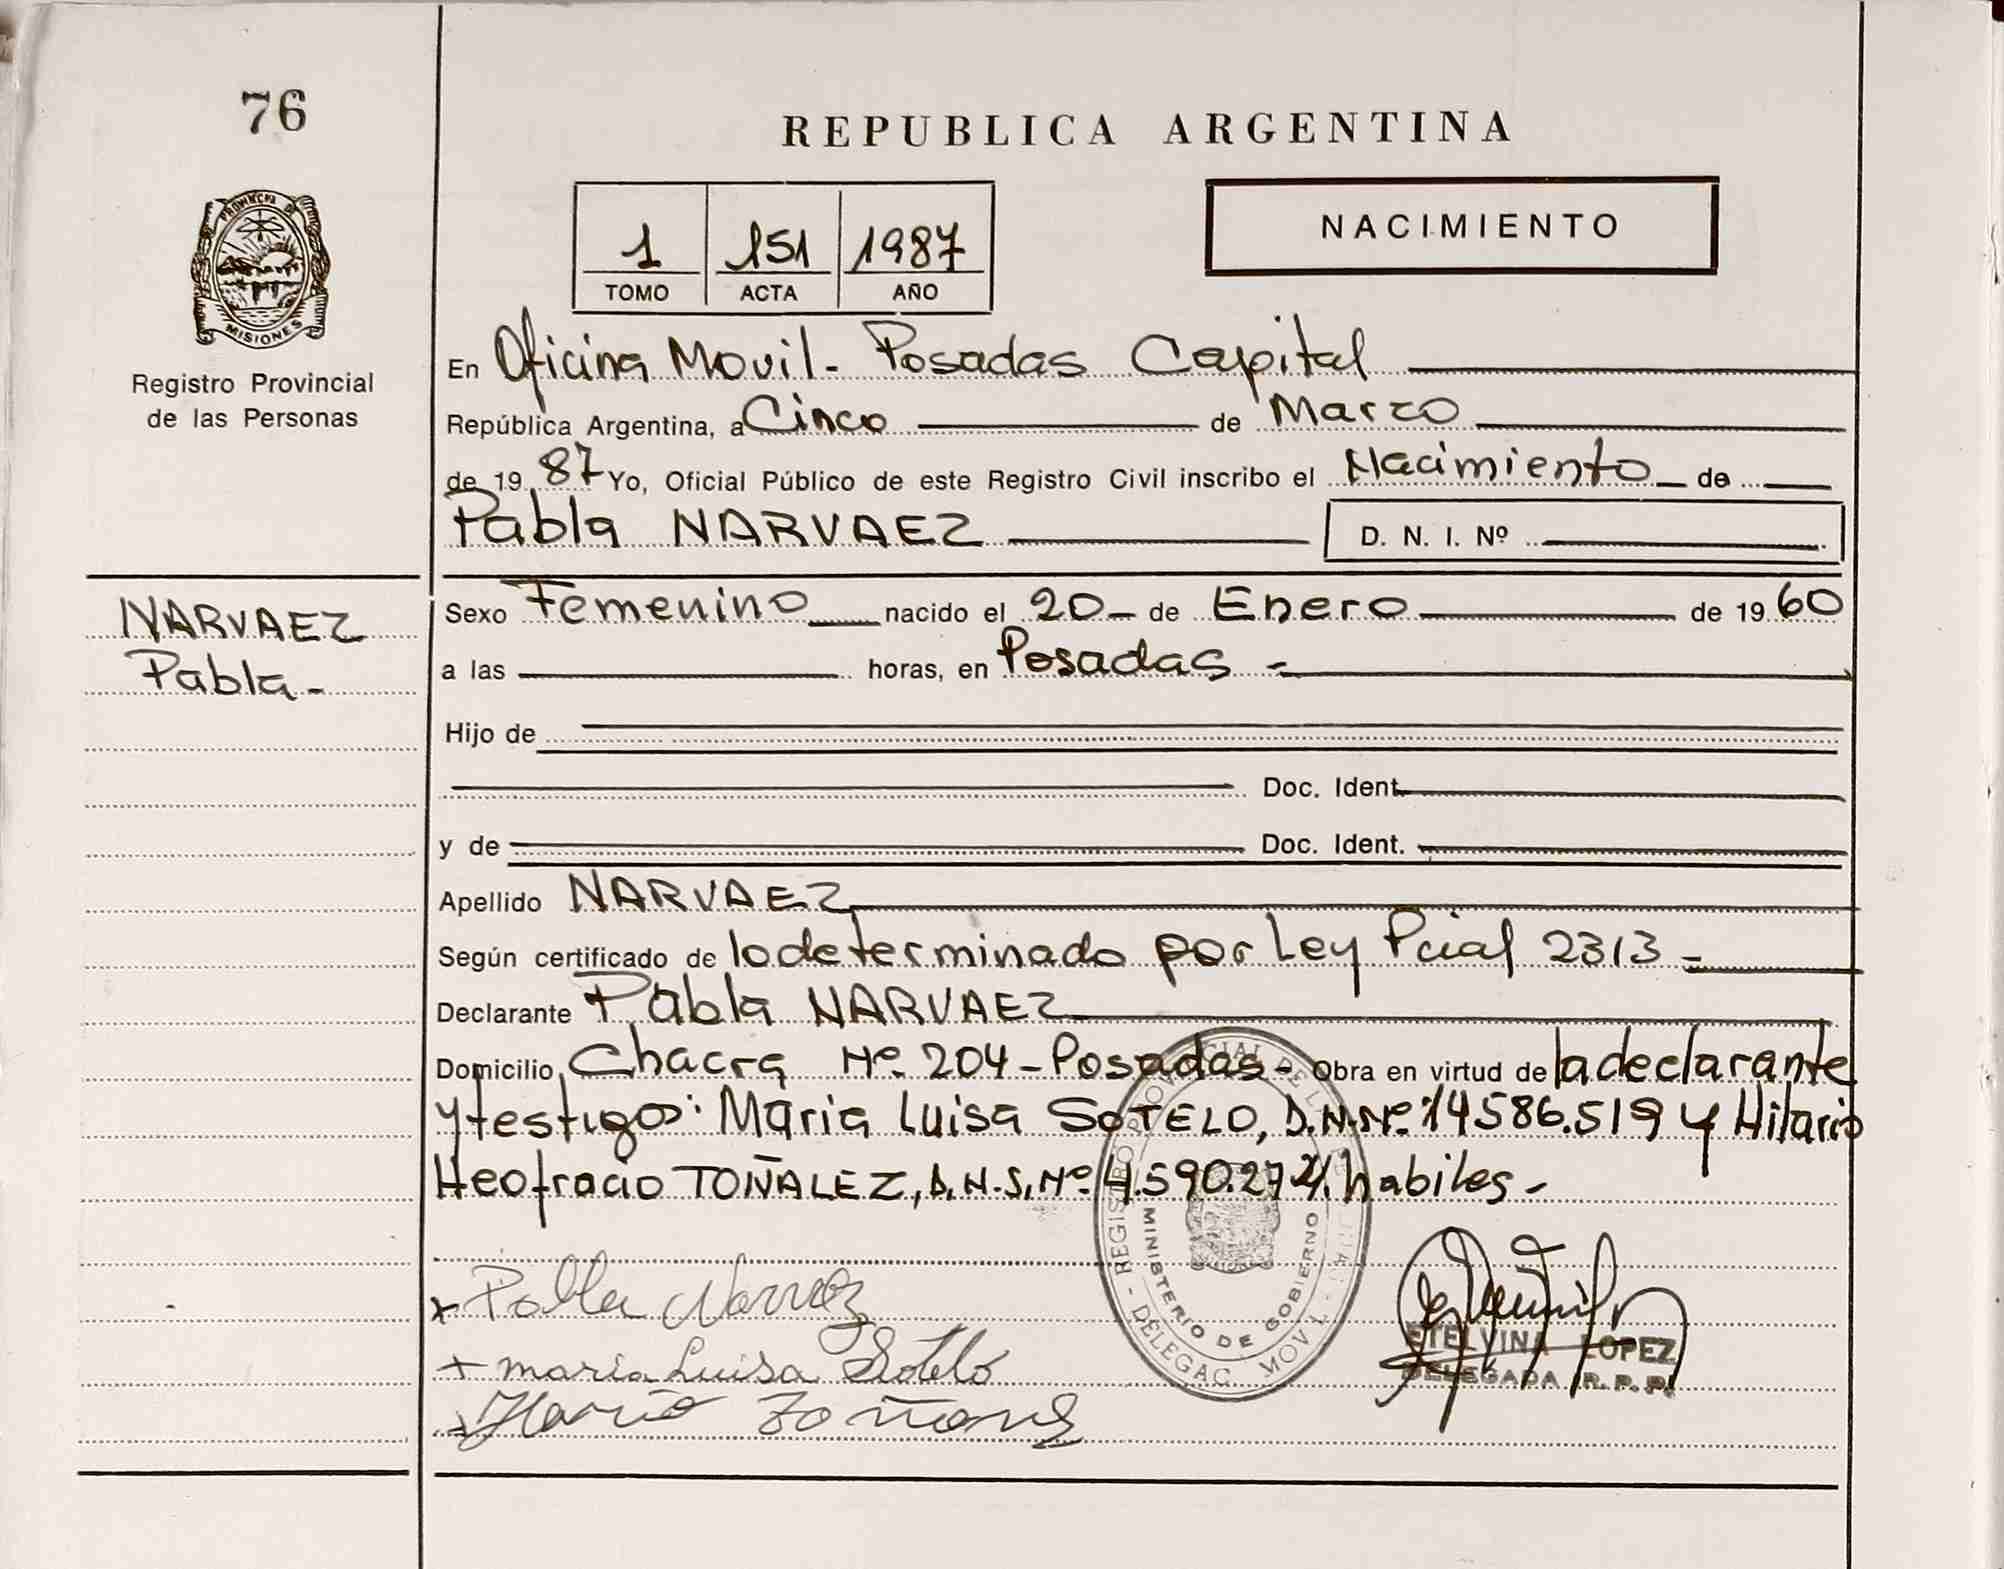 76
REPUBLICA ARGENTINA
PROVINCIA DE
MISIONES
Registro Provincial
de las Personas
NACIMIENTO
1 151 1987
TOMO ACTA AÑO
En Oficina Movil - Posadas Capital
República Argentina, a Cinco de Marzo
de 19 87 Yo, Oficial Público de este Registro Civil inscribo el Nacimiento de
Pabla NARVAEZ D. N. I. Nº
NARVAEZ
Pabla -
Sexo Femenino nacido el 20 - de Enero de 19 60
a las horas, en Posadas -
Hijo de
Doc. Ident.
y de Doc. Ident.
Apellido NARVAEZ
Según certificado de lo determinado por Ley Pcial 2313 -
Declarante Pabla NARVAEZ
Domicilio Chacra Nº 204 - Posadas - Obra en virtud de la declarante
y testigos: Maria Luisa SOTELO, D.N.Nº 14586.519 y Hilario
Heofracio TOÑALEZ, D.N.S. Nº 4.590.274. habiles -
REGISTRO PROVINCIAL DE LAS - DELEGAC. MOVIL -
MINISTERIO DE GOBIERNO
Pabla Narvaez
+ maria Luisa Sotelo
ETELVINA LOPEZ
DELEGADA R. P. P.